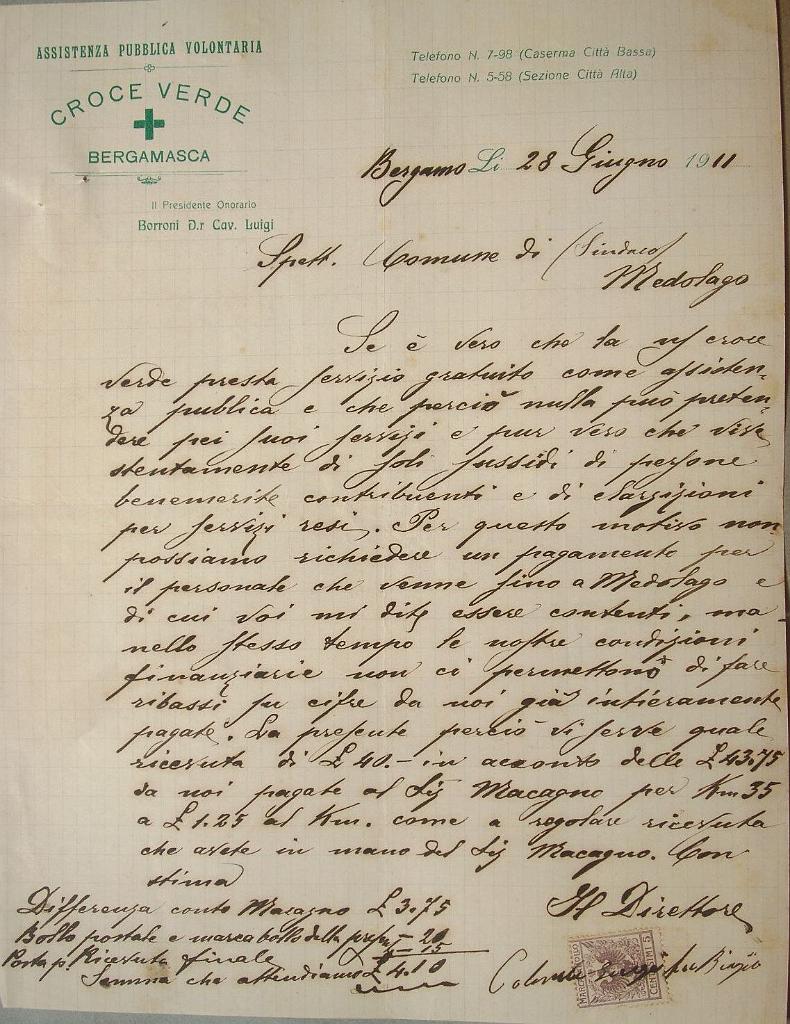 ASSISTENZA PUBBLICA VOLONTARIA
CROCE VERDE
BERGAMASCA
Il Presidente Onorario
Borroni D.r Cav. Luigi
Telefono N. 7-98 (Caserma Città Bassa)
Telefono N. 5-58 (Sezione Città Alta)
Bergamo Li 28 Giugno 1911
Spett. Comune di (Sindaco)
Medolago
Se è vero che la croce
verde presta servizio gratuito come assisten-
za publica e che perciò nulla può preten-
dere pei suoi servizi e pur vero che vive
stentamente di soli sussidi di persone
benemerite contribuenti e di elargizioni
per servizi resi. Per questo motivo non
possiamo richiedere un pagamento per
il personale che venne fino a Medolago e
di cui voi mi dite essere contenti, ma
nello stesso tempo le nostre condizioni
finanziarie non ci permettono di fare
ribassi su cifre da noi già intieramente
pagate. La presente perciò vi serve quale
ricevuta di £ 40.- in acconto delle £ 43.75
da noi pagate al Sig Macagno per Km 35
a £ 1.25 al Km. come a regolare ricevuta
che avete in mano del Sig Macagno. Con
stima
Differenza conto Macagno £ 3.75
Bollo postale e marca bollo della 20
Posta p. Ricevuta finale 15
Somma che attendiamo £ 4.10
Il Direttore
MARCA DA BOLLO
CENTESIMI 5